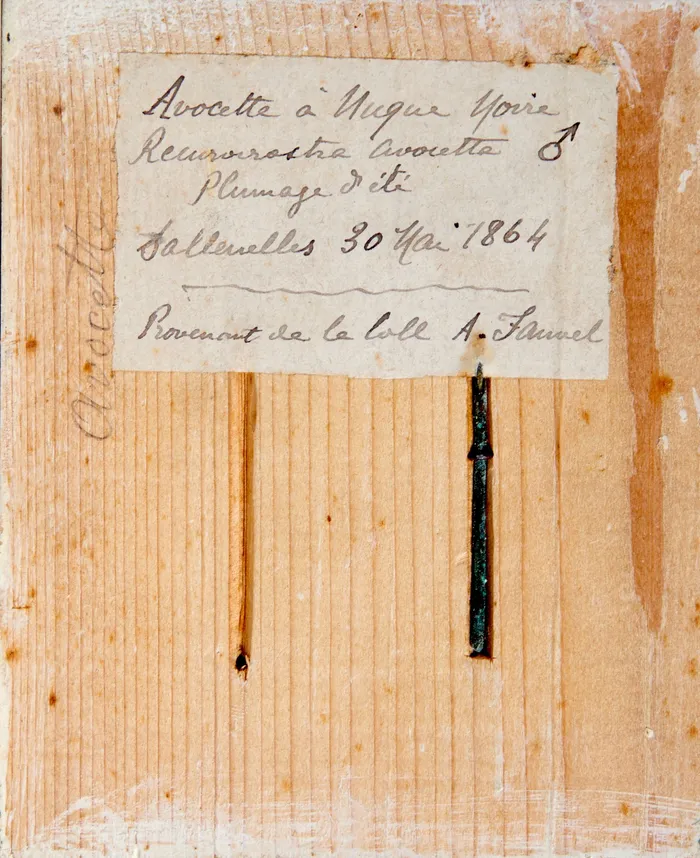 Avocette à Nuque Noire
Recurvirostra avocetta ♂
Plumage d'été
Sallenelles 30 Mai 1864
Provenant de la Coll A. Fauvel
Avocette